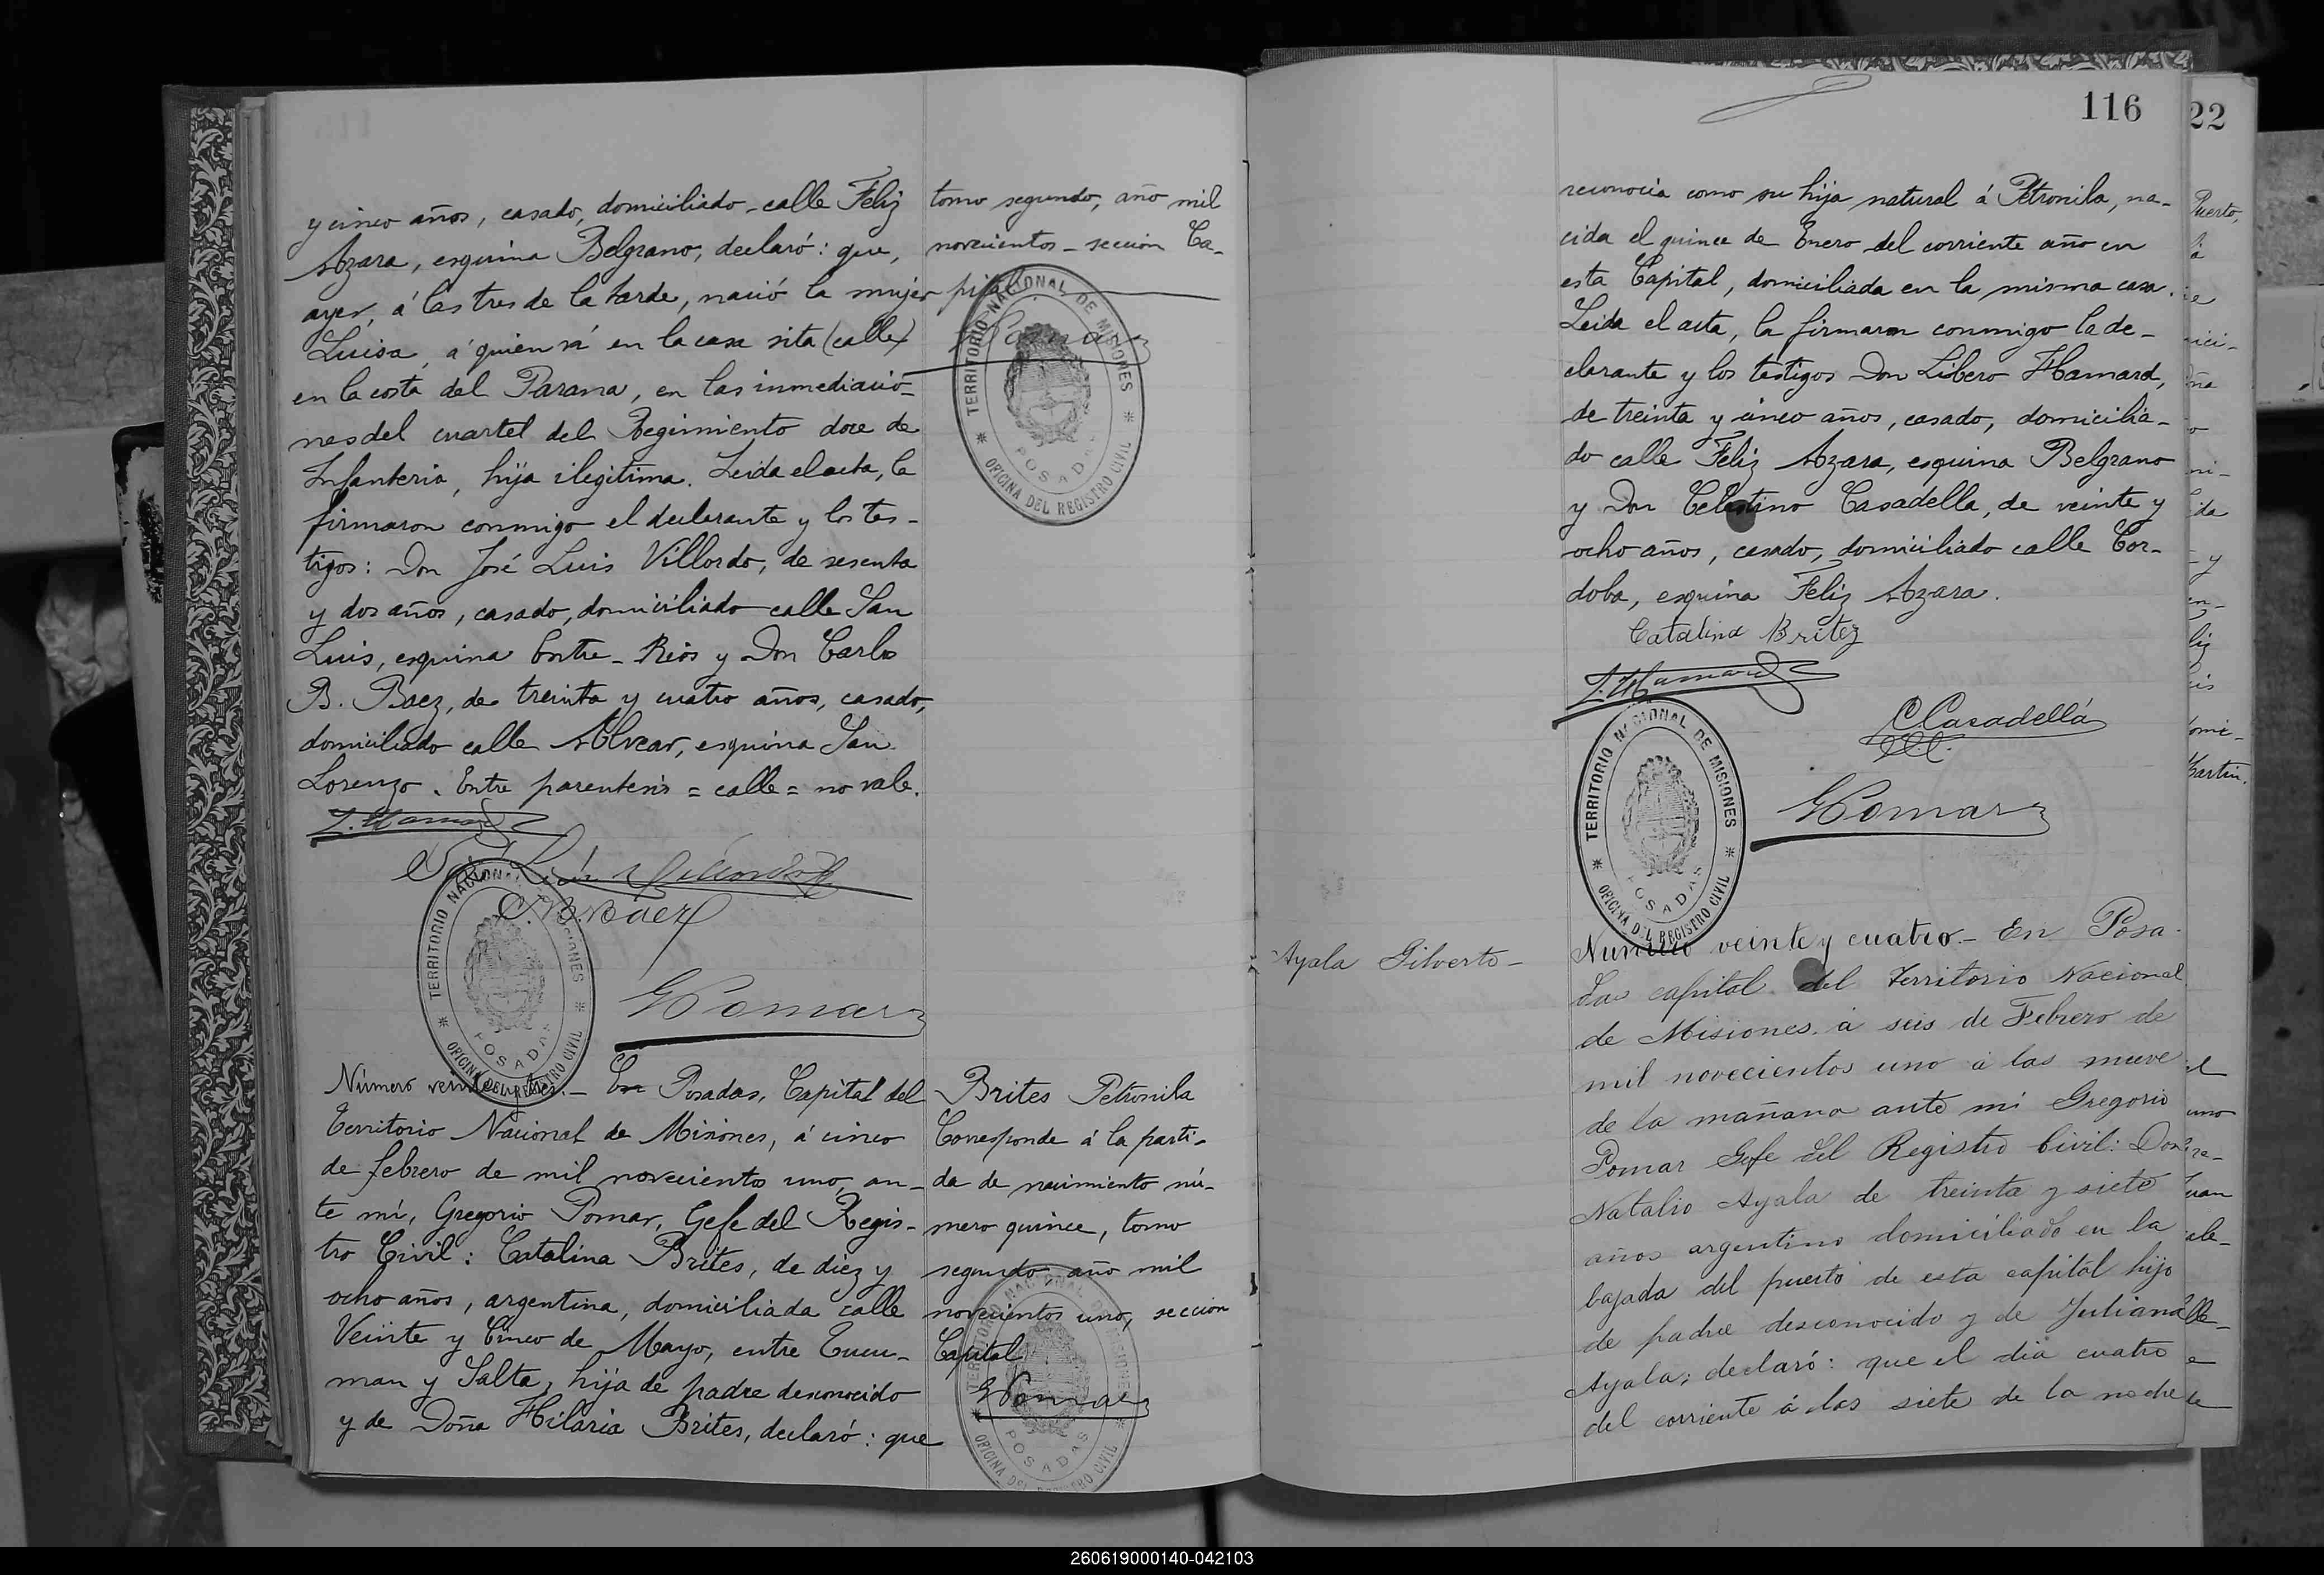 y cinco años, casado, domiciliado calle Feliz
Azara, esquina Belgrano, declaró: que,
ayer, á las tres de la tarde, nació la mujer
Luisa, á quien vá en la casa sita (calle)
en la costa del Parana, en las inmediacio-
nes del cuartel del Regimiento doce de
Infanteria, hija ilegitima. Leida el acta, la
firmaron conmigo el declarante y los tes-
tigos: Don José Luis Villordo, de sesenta
y dos años, casado, domiciliado calle San
Luis, esquina Entre-Rios y Don Carlos
B. Baez, de treinta y cuatro años, casado,
domiciliado calle Alvear, esquina San
Lorenzo. Entre parentesis = calle = no vale.
L. Hamard
C. B. Báez
GPomar
tomo segundo, año mil
novecientos - sección Ca-
pital
Pomar
TERRITORIO NACIONAL DE MISIONES
POSADAS
OFICINA DEL REGISTRO CIVIL
TERRITORIO NACIONAL DE MISIONES
POSADAS
OFICINA DEL REGISTRO CIVIL
Número veinte y tres.- En Posadas, Capital del
Territorio Nacional de Misiones, á cinco
de febrero de mil novecientos uno, an-
te mí, Gregorio Pomar, Gefe del Regis-
tro Civil: Catalina Brites, de diez y
ocho años, argentina, domiciliada calle
Veinte y Cinco de Mayo, entre Tucu-
man y Salta, hija de padre desconocido
y de Doña Hilaria Brites, declaró: que
Brites Petronila
Corresponde á la parti-
da de nacimiento nú-
mero quince, tomo
segundo, año mil
novecientos uno, sección
Capital
GPomar
TERRITORIO NACIONAL DE MISIONES
POSADAS
OFICINA DEL REGISTRO CIVIL
116
reconocia como su hija natural á Petronila, na-
cida el quince de Enero del corriente año en
esta Capital, domiciliada en la misma casa.
Leida el acta, la firmaron conmigo la de-
clarante y los testigos Don Libero Hamard,
de treinta y cinco años, casado, domicilia-
do calle Feliz Azara, esquina Belgrano
y Don Celestino Casadella, de veinte y
ocho años, casado, domiciliado calle Cor-
doba, esquina Feliz Azara.
Catalina Britez
L. Hamard
C. Casadellá
GPomar
TERRITORIO NACIONAL DE MISIONES
POSADAS
OFICINA DEL REGISTRO CIVIL
Ayala Gilverto-
Numero veinte y cuatro.- En Posa-
das capital del Territorio Nacional
de Misiones á seis de Febrero de
mil novecientos uno á las nueve
de la mañana ante mi Gregorio
Pomar Gefe del Registro Civil: Don
Natalio Ayala de treinta y siete
años argentino domiciliado en la
bajada del puerto de esta capital hijo
de padre desconocido y de Juliana
Ayala; declaró: que el dia cuatro
del corriente á las siete de la noche
22
Puerto,
260619000140-042103